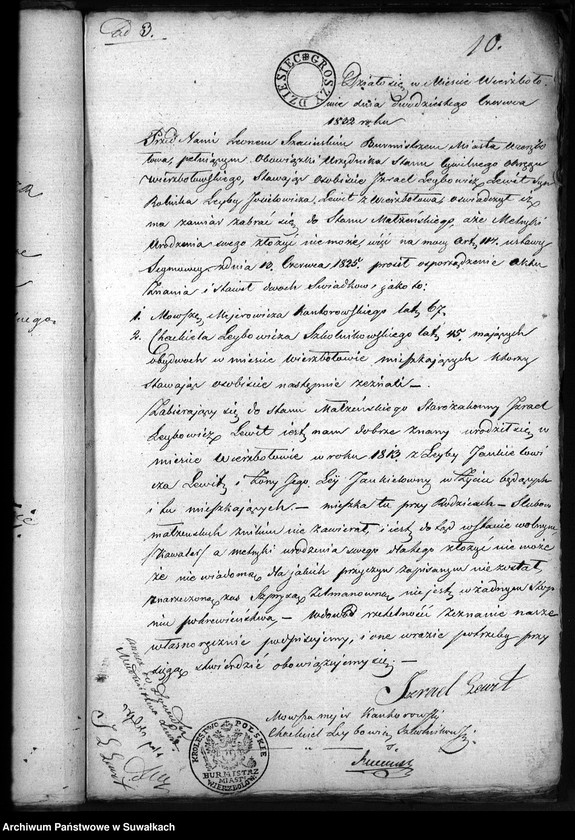 Ad 3.
10.
DZIESIĘC GROSZY
Działo się w Mieście Wierzbołowie
dnia dwudziestego Czerwca
1832 roku
Przed Nami Leonem Burmistrzem Miasta Wierzbołowa,
pełniącym Obowiązki Urzędnika Stanu Cywilnego Okręgu
Wierzbołowskiego, Stawając Osobiście Izrael Leybowicz Lewit Syn
Rolnika Leyby Lewit z Wierzbołowa, oswiadczył iż
ma zamiar zabrać się do Stanu Małżeńskiego, a że Metryki
Urodzenia swego złożyć nie może, więc na mocy Art. ustawy
Seymowey z dnia Czerwca 1825. prosił o sporządzenie Aktu
Znania i Stawił dwoch Świadkow, jako to:
1. Mowszę Mejerowicza Kantorowskiego lat 67.
2. Chackiela Leybowicza Szkolnikowskiego lat 45, mających
obydwoch w mieście Wierzbołowie mieszkających którzy
stawając osobiście następnie zeznali –.
Zabierający się do Stanu Małżeńskiego Starozakonny Izrael
Leybowicz Lewit jest nam dobrze znany urodził się w
mieście Wierzbołowie w roku 1813 z Leyby Jankielowicza
Lewit i Żony Jego Leÿ Jankielowny w Życiu będących
i tu mieszkających. – mieszka tu przy Rodzicach – Slubow
małżeńskich z nikim nie zawierał, i jest do tąd w stanie wolnym,
/Kawaler/ a metryki urodzenia swego dla tego złożyć nie może
że niewiadomo dla jakich przyczyn zapisanym nie został,
znarzeczoną zaś Zelmanowną nie jest w żadnym Stopniu
podrewieństwa, – rzetelność Zeznanie nasze
własnoręcznie podpisujemy, i one wrazie potrzeby przysięgą
stwierdzić obowiązujemy się. –
Izrael Lewit
Mowsza mejer Kantorowski
Chackiel Leybowicz Szkolnikowski
KROLESTWO POLSKIE
BURMISTRZ
MIASTA
WIERZBOŁOWA
Archiwum Państwowe w Suwałkach